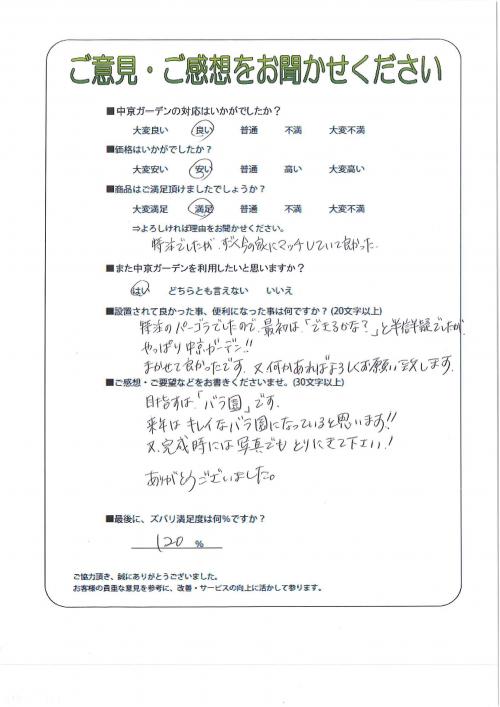 ご意見・ご感想をお聞かせください
■中京ガーデンの対応はいかがでしたか？
大変良い 良い 普通 不満 大変不満
■価格はいかがでしたか？
大変安い 安い 普通 高い 大変高い
■商品はご満足頂けましたでしょうか？
大変満足 満足 普通 不満 大変不満
⇒よろしければ理由をお聞かせください。
特注でしたが、すごく今の家にマッチしていて良かった
■また中京ガーデンを利用したいと思いますか？
はい どちらとも言えない いいえ
■設置されて良かった事、便利になった事は何ですか？(20文字以上)
特注のパーゴラでしたので、最初は、「できるかな？」と半信半疑でしたが
やっぱり中京ガーデン!!
まかせて良かったです。又何かあればよろしくお願い致します。
■ご感想・ご要望などをお書きくださいませ。(30文字以上)
目指すは「バラ園」です。
来年はキレイなバラ園になっていると思います!!
又、完成時には写真でもとりにきて下さい！
ありがとうございました。
■最後に、ズバリ満足度は何%ですか？
120 %
ご協力頂き、誠にありがとうございました。
お客様の貴重な意見を参考に、改善・サービスの向上に活かして参ります。